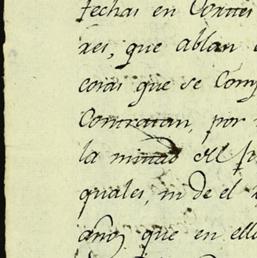 fechas en Cortes
res, que ablan
cosas que se Com
Contratan, por
la mitad del p
quales, ni de el
año, que en ell